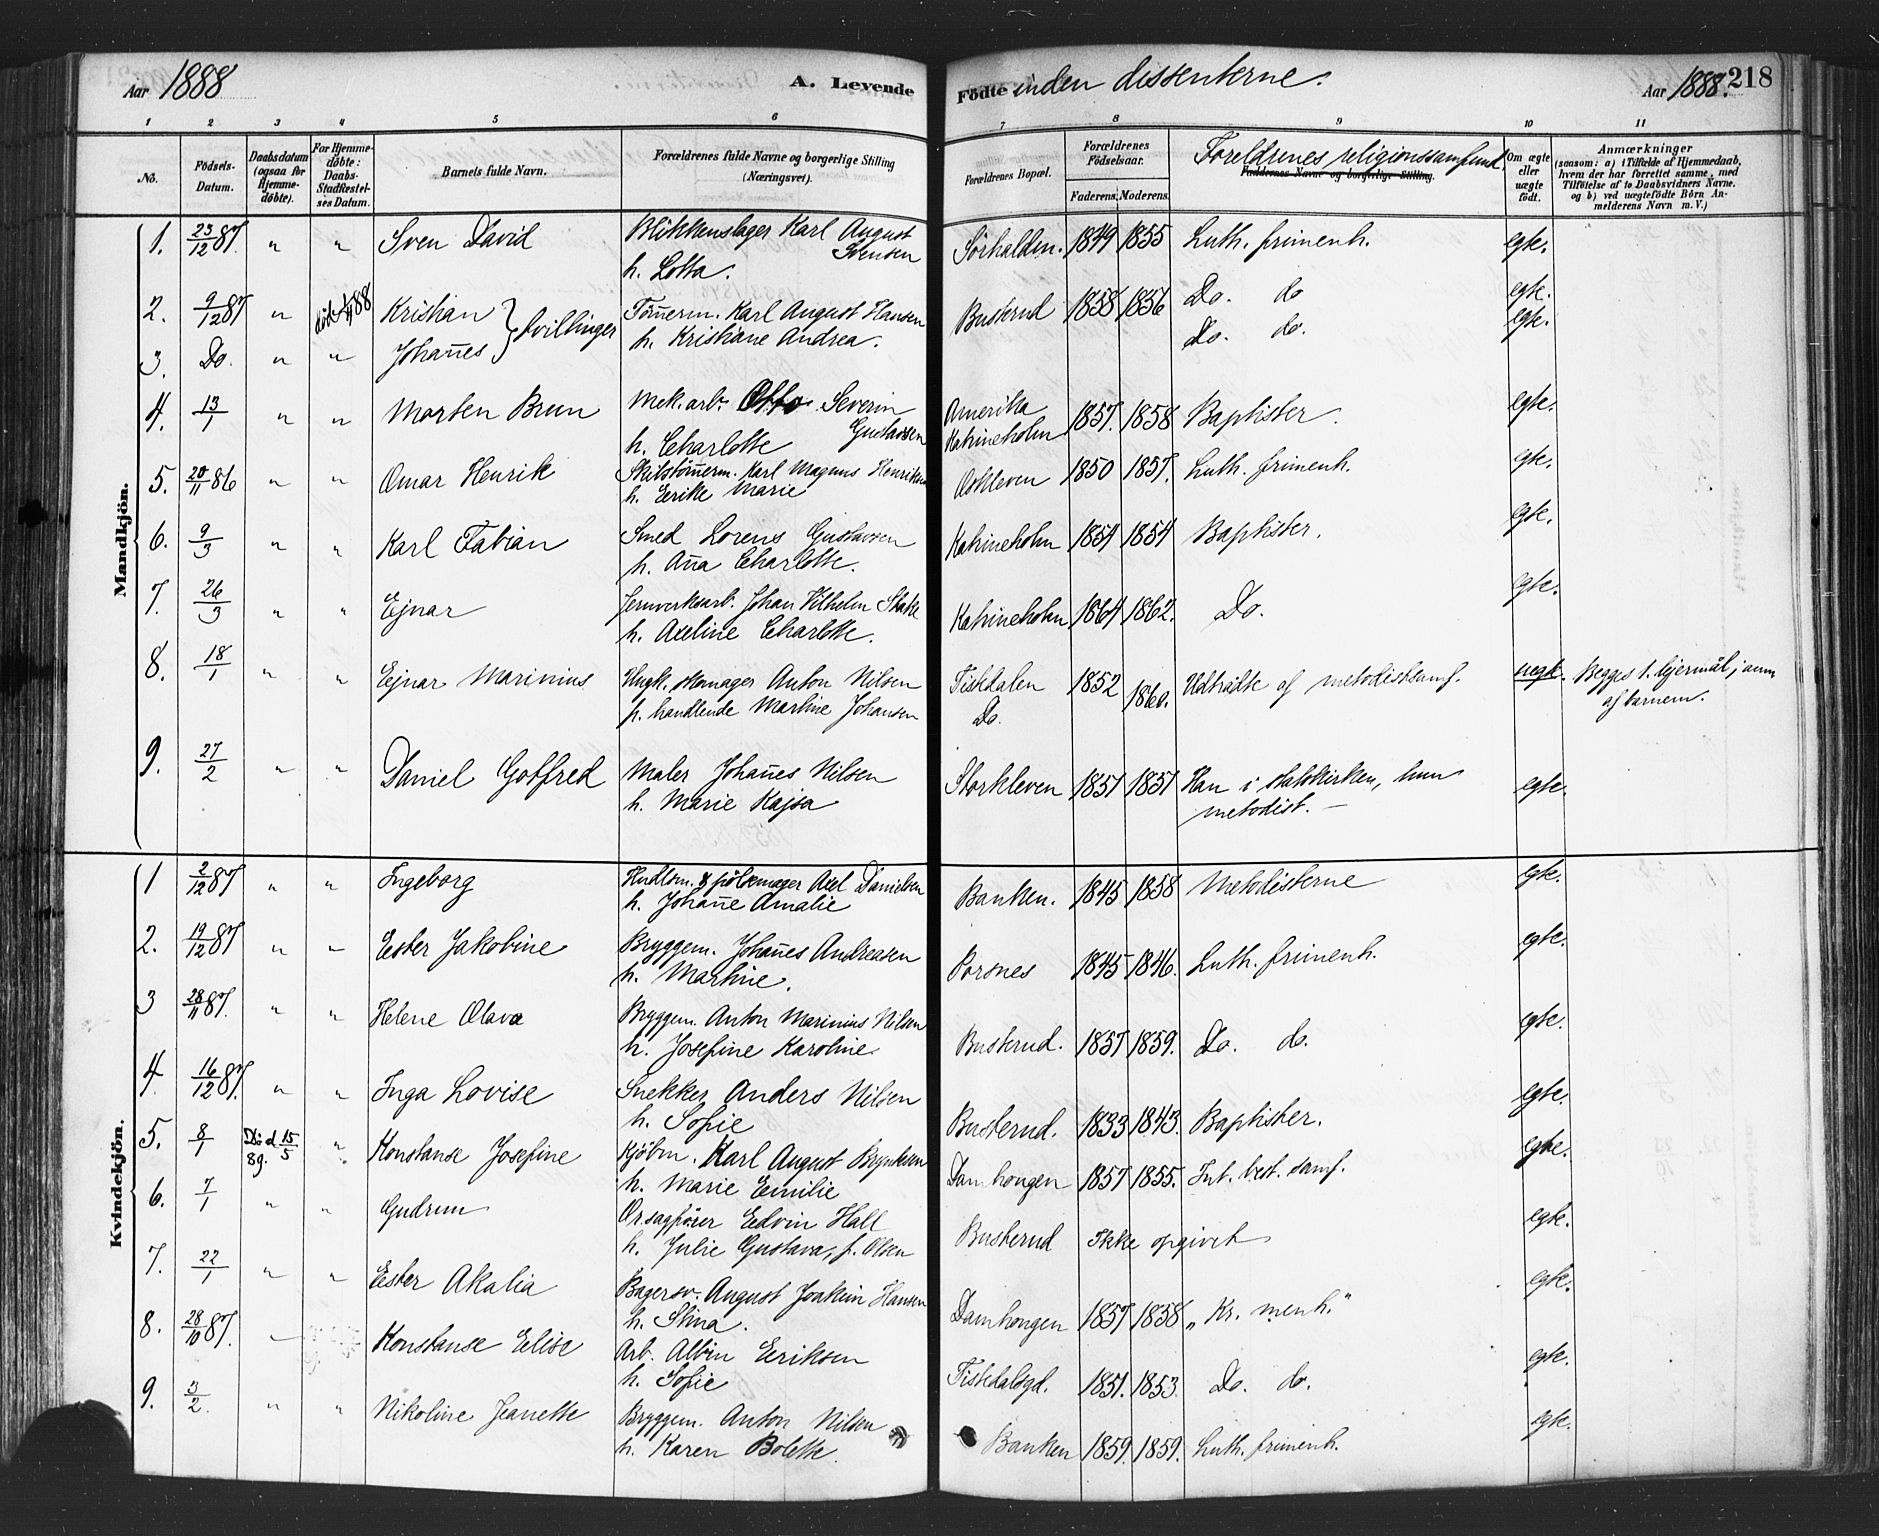 Aar 1888 A. Levende Födte inden dissenterne. Aar 1888. 218
1 2 3 4 5 6 7 8 9 10 11
No. Födsels-Datum. Daabsdatum (ogsaa for Hjemmedöbte). For Hjemmedöbte: Daabs-Stadfæstelses Datum. Barnets fulde Navn. Forældrenes fulde Navne og borgerlige Stilling (Næringsvei). Forældrenes Bopæl. Forældrenes Födselsaar. Faderens. Moderens. Foreldrenes religionssamfund. Faddernes Navne og borgerlige Stilling. Om ægte eller uægte födt. Anmærkninger (saasom: a) i Tilfælde af Hjemmedaab, hvem der har forrettet samme, med Tilföielse af to Daabsvidners Navne. og b) ved uægtefödte Börn Anmelderens Navn m. V.)
Mandkjön.
1. 23/12 87. " " Sven David Blikkenslager Karl August Svensen h. Lotta. Sörhalden. 1849 1855 Luth. frimenh. egte.
2. 9/12 87 " död 88 Kristian } tvillinger Tömerm. Karl August Hansen h. Kristiane Andrea. Busterud 1858 1856 Do. do egte.
3. Do. " " Johan̄es Do. do. egte.
4. 13/1 " " Morten Brun Mek. arb. Otto Severin Gustavsen h. Charlotte Amerika Katrineholm 1857. 1858 Baptister. egte.
5. 20/11 86 " " Omar Henrik Skibstöm̄erm. Karl Magnus Henriksen h. Eerike Marie 1850 1857. Luth. frimenh. egte.
6. 9/3 " " Karl Fabian Smed Lorens Gustavsen h. An̄a Charlotte. Katrineholm 1854 1854 Baptister. egte.
7. 26/3 " " Ejnar Jernverksarb. Johan Vilhelm Stake h. Axeline Charlotte. Katrineholm 1864 1862. Do. egte.
8. 18/1 " " Ejnar Marinius Ungk. skomager Anton Nilsen p. handlende Martine Johansen Fiskdalen Do. 1852 1860. Udtrådte af metodistsamf. uegte. Begges 1. lejermål; anm af barnem.
9. 27/2 " " Daniel Gotfred Maler Johan̄es Nilsen h. Marie Kajsa Storkleven 1857 1857 Han i statskirken, hun metodist. — egte.
Kvindekjön.
1 2/12 87 " " Ingeborg Handlsm. & pölsemager Axel Danielsen h. Johan̄e Amalie Banken. 1845 1858 Metodisterne egte.
2. 19/12 87 " " Ester Jakobine Bryggem. Johan̄es Andreasen h. Martine. Porsnes 1845 1846. Luth. frimenh. egte.
3 28/11 87. " " Helene Olava Bryggem. Anton Marinius Nilsen h. Josefine Karoline. Busterud. 1857 1859. Do. do. egte.
4. 16/12 87. " " Inga Lovise Snekker Anders Nilsen h. Sofie Busterud. 1833 1843. Baptister. egte.
5. 8/1 Död 15/5 89. " Konstanse Josefine Kjöbm. Karl August Bryntesen h. Marie Emilie Damhougen 1857 1855. Int. best. samf. egte.
6. 7/1 " " Gudrun Orsagförer Edvin Hall h. Julie Gustava, f. Olsen Busterud Ikke opgivet egte.
7. 22/1 " " Ester Akalia Bagersv. August Joakim Hansen h. Stina. Damhougen 1857 1858 „Kr. menh." egte.
8. 28/10 87. " Konstanse Elise Arb. Albin Eriksen h. Sofie Fiskdalsgd. 1851. 1853. Do. do. egte.
9. 3/2. " " Nikoline Jeanette Bryggem. Anton Nilsen h. Karen Bolette. Banken 1859. 1859. Luth. frimenh. egte.